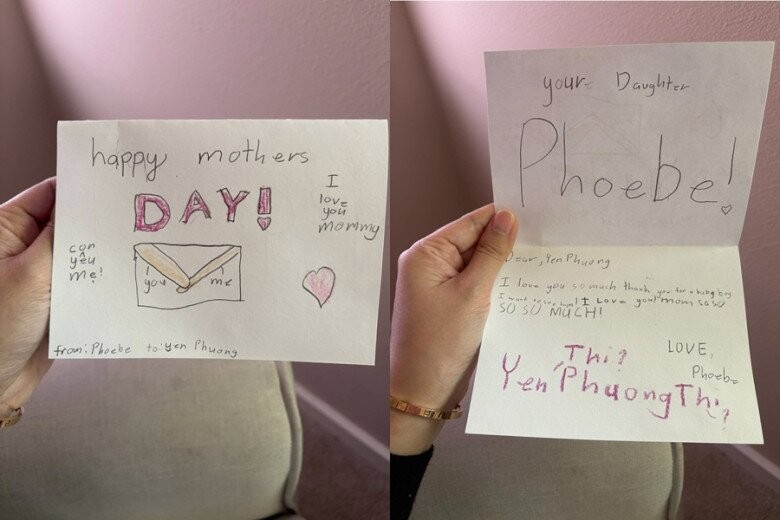 happy mothers
DAY!
I
love
you
mommy
con
you
me!
I
you
me
from: Phoebe to: Yen Phuong
your Daughter
Phoebe!
Dear, Yen Phuong
I love you so much thank you for
I love you! mom so so
SO SO MUCH!
LOVE,
Phoebe
Thi?
Yen Phuong Thi?